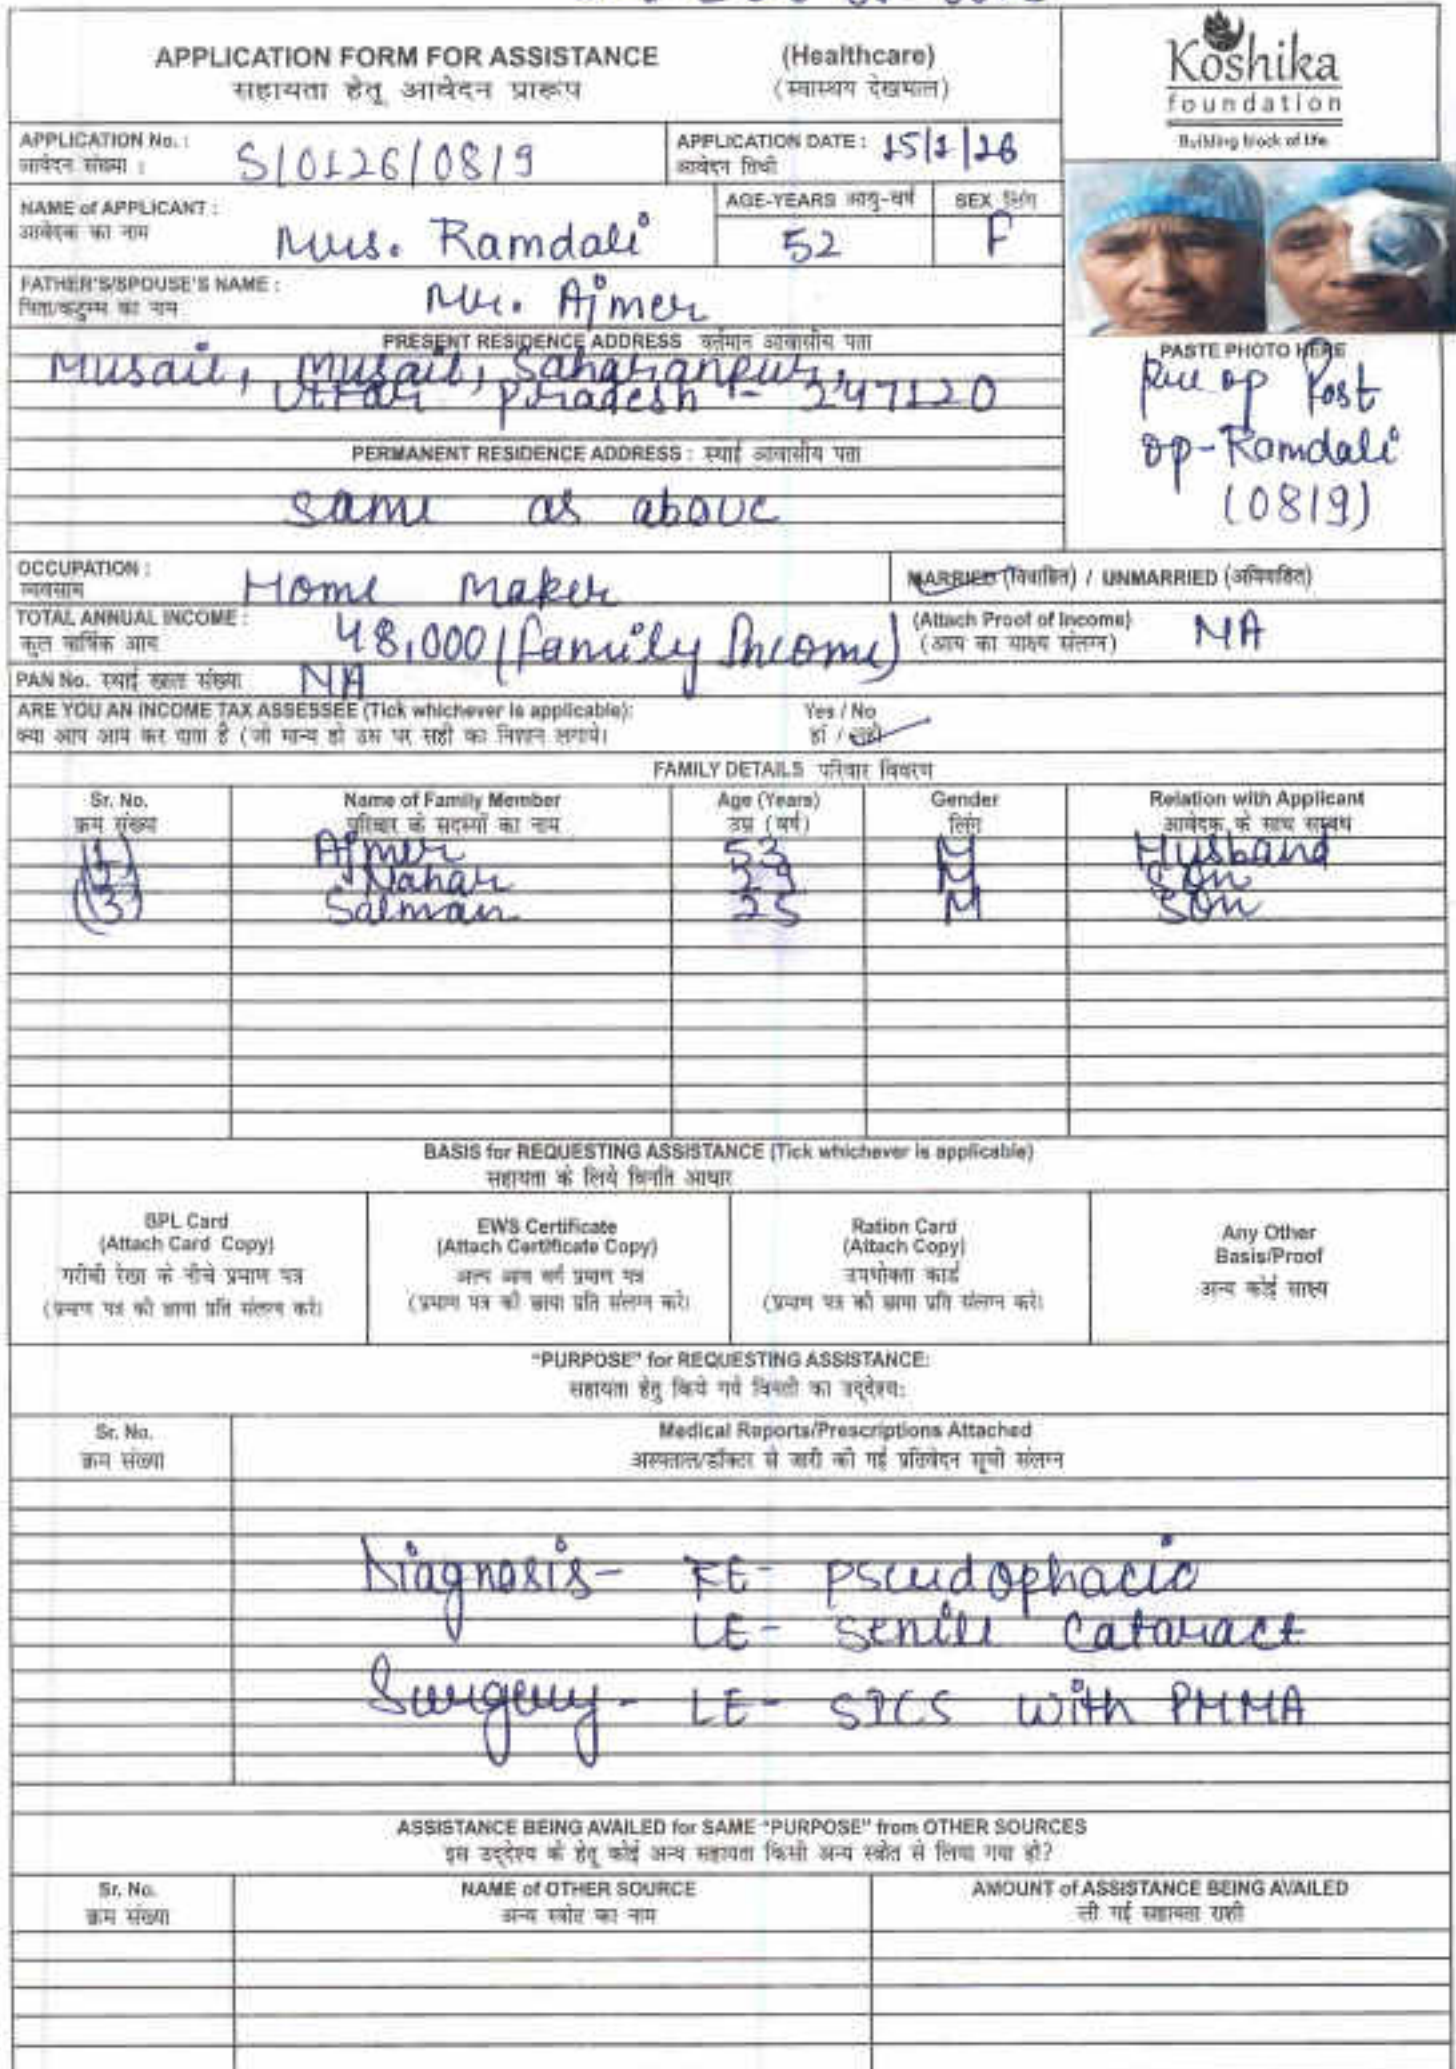 APPLICATION FORM FOR ASSISTANCE (Healthcare)
सहायता हेतू आवेदन प्रारूप (स्वास्थय देखभाल)
Koshika
foundation
Building block of life
APPLICATION No. : S/0126/0819 APPLICATION DATE : 15/1/26
आवेदन संख्या : आवेदन तिथी
NAME of APPLICANT : Mrs. Ramdali AGE-YEARS आयु-वर्ष 52 SEX लिंग F
आवेदक का नाम
FATHER'S/SPOUSE'S NAME : Mr. Ajmer
पिता/कटुम्ब का नाम
PRESENT RESIDENCE ADDRESS वर्तमान आवासीय पता
Musail, Musail, Saharanpur,
Uttar Pradesh - 247120
PASTE PHOTO HERE
Pre op Post
op-Ramdali
(0819)
PERMANENT RESIDENCE ADDRESS : स्थाई आवासीय पता
Same as above
OCCUPATION : Home Maker MARRIED (विवाहित) / UNMARRIED (अविवाहित)
व्यवसाय
TOTAL ANNUAL INCOME : 48,000 (Family Income) (Attach Proof of Income) NA
कुल वार्षिक आय (आय का साक्ष्य संलग्न)
PAN No. स्थाई खाता संख्या NA
ARE YOU AN INCOME TAX ASSESSEE (Tick whichever is applicable): Yes / No
क्या आप आय कर दाता है (जो मान्य हो उस पर सही का निशान लगाये। हां / नहीं
FAMILY DETAILS परिवार विवरण
Sr. No. Name of Family Member Age (Years) Gender Relation with Applicant
क्रम संख्या परिवार के सदस्यों का नाम उम्र (वर्ष) लिंग आवेदक के साथ सम्बध
(1) Ajmer 53 M Husband
(2) Nahar 29 M Son
(3) Salman 25 M Son
BASIS for REQUESTING ASSISTANCE (Tick whichever is applicable)
सहायता के लिये विनति आधार
BPL Card
(Attach Card Copy)
गरीबी रेखा के नीचे प्रमाण पत्र
(प्रमाण पत्र की छाया प्रति संलग्न करे।
EWS Certificate
(Attach Certificate Copy)
अल्प आय वर्ग प्रमाण पत्र
(प्रमाण पत्र की छाया प्रति संलग्न करे।
Ration Card
(Attach Copy)
उपभोक्ता कार्ड
(प्रमाण पत्र की छाया प्रति संलग्न करे।
Any Other
Basis/Proof
अन्य कोई साक्ष्य
"PURPOSE" for REQUESTING ASSISTANCE:
सहायता हेतु किये गये विनती का उद्देश्य:
Sr. No. Medical Reports/Prescriptions Attached
क्रम संख्या अस्पताल/डॉक्टर से जारी की गई प्रतिवेदन सूची संलग्न
Diagnosis- RE- Pseudophacic
LE- Senile Cataract
Surgery- LE- SICS with PMMA
ASSISTANCE BEING AVAILED for SAME "PURPOSE" from OTHER SOURCES
इस उद्देश्य के हेतू कोई अन्य सहायता किसी अन्य स्त्रोत से लिया गया हो?
Sr. No. NAME of OTHER SOURCE AMOUNT of ASSISTANCE BEING AVAILED
क्रम संख्या अन्य स्त्रोत का नाम ली गई सहायता राशी